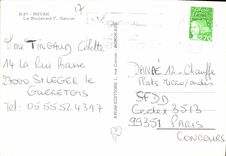 17
R.87 - ROYAN
Le Boulevard F. Garnier
Mme TINGAUD Colette
14 La Rue Basse
23000 St LEGER le
GUERETOIS
Tel. 05 55 52 43 97
DANSÉ 12 - Chauffe
Plats Micro/ondes
SFDD
Cedex 3513
99351 PARIS
CONCOURS